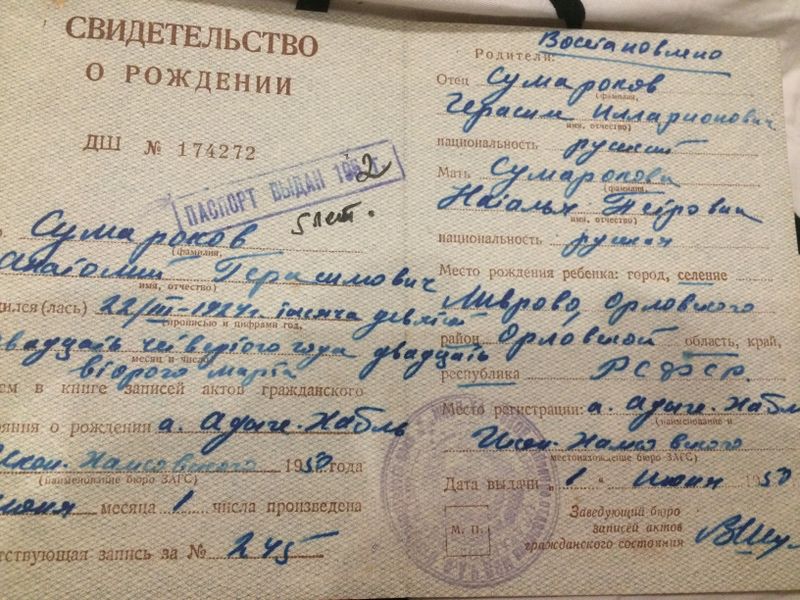 СВИДЕТЕЛЬСТВО
О РОЖДЕНИИ
ДШ № 174272
ПАСПОРТ ВЫДАН 1962
5 лет.
Сумароков
(фамилия,
Анатолий Герасимович
имя, отчество)
дился(лась) 22/III-1924г. тысяча девятьсот
(прописью и цифрами год,
двадцать четвертого года двадцать
месяц и число)
второго марта
ем в книге записей актов гражданского
ояния о рождении а. Адыге-Хабль
Икон-Халковского 1950 года
(наименование бюро ЗАГС)
июня месяца 1 числа произведена
тствующая запись за № 245
Восстановлено
Родители:
Отец Сумароков
(фамилия,
Герасим Илларионович
имя, отчество)
национальность русский
Мать Сумарокова
(фамилия,
Наталья Петровна
имя, отчество)
национальность русская
Место рождения ребенка: город, селение
Орловского
район Орловской область, край,
республика РСФСР
Место регистрации: а. Адыге-Хабль
(наименование и
местонахождение бюро ЗАГС)
Дата выдачи „1" июня 1950
М. П.
Заведующий бюро
записей актов
гражданского состояния